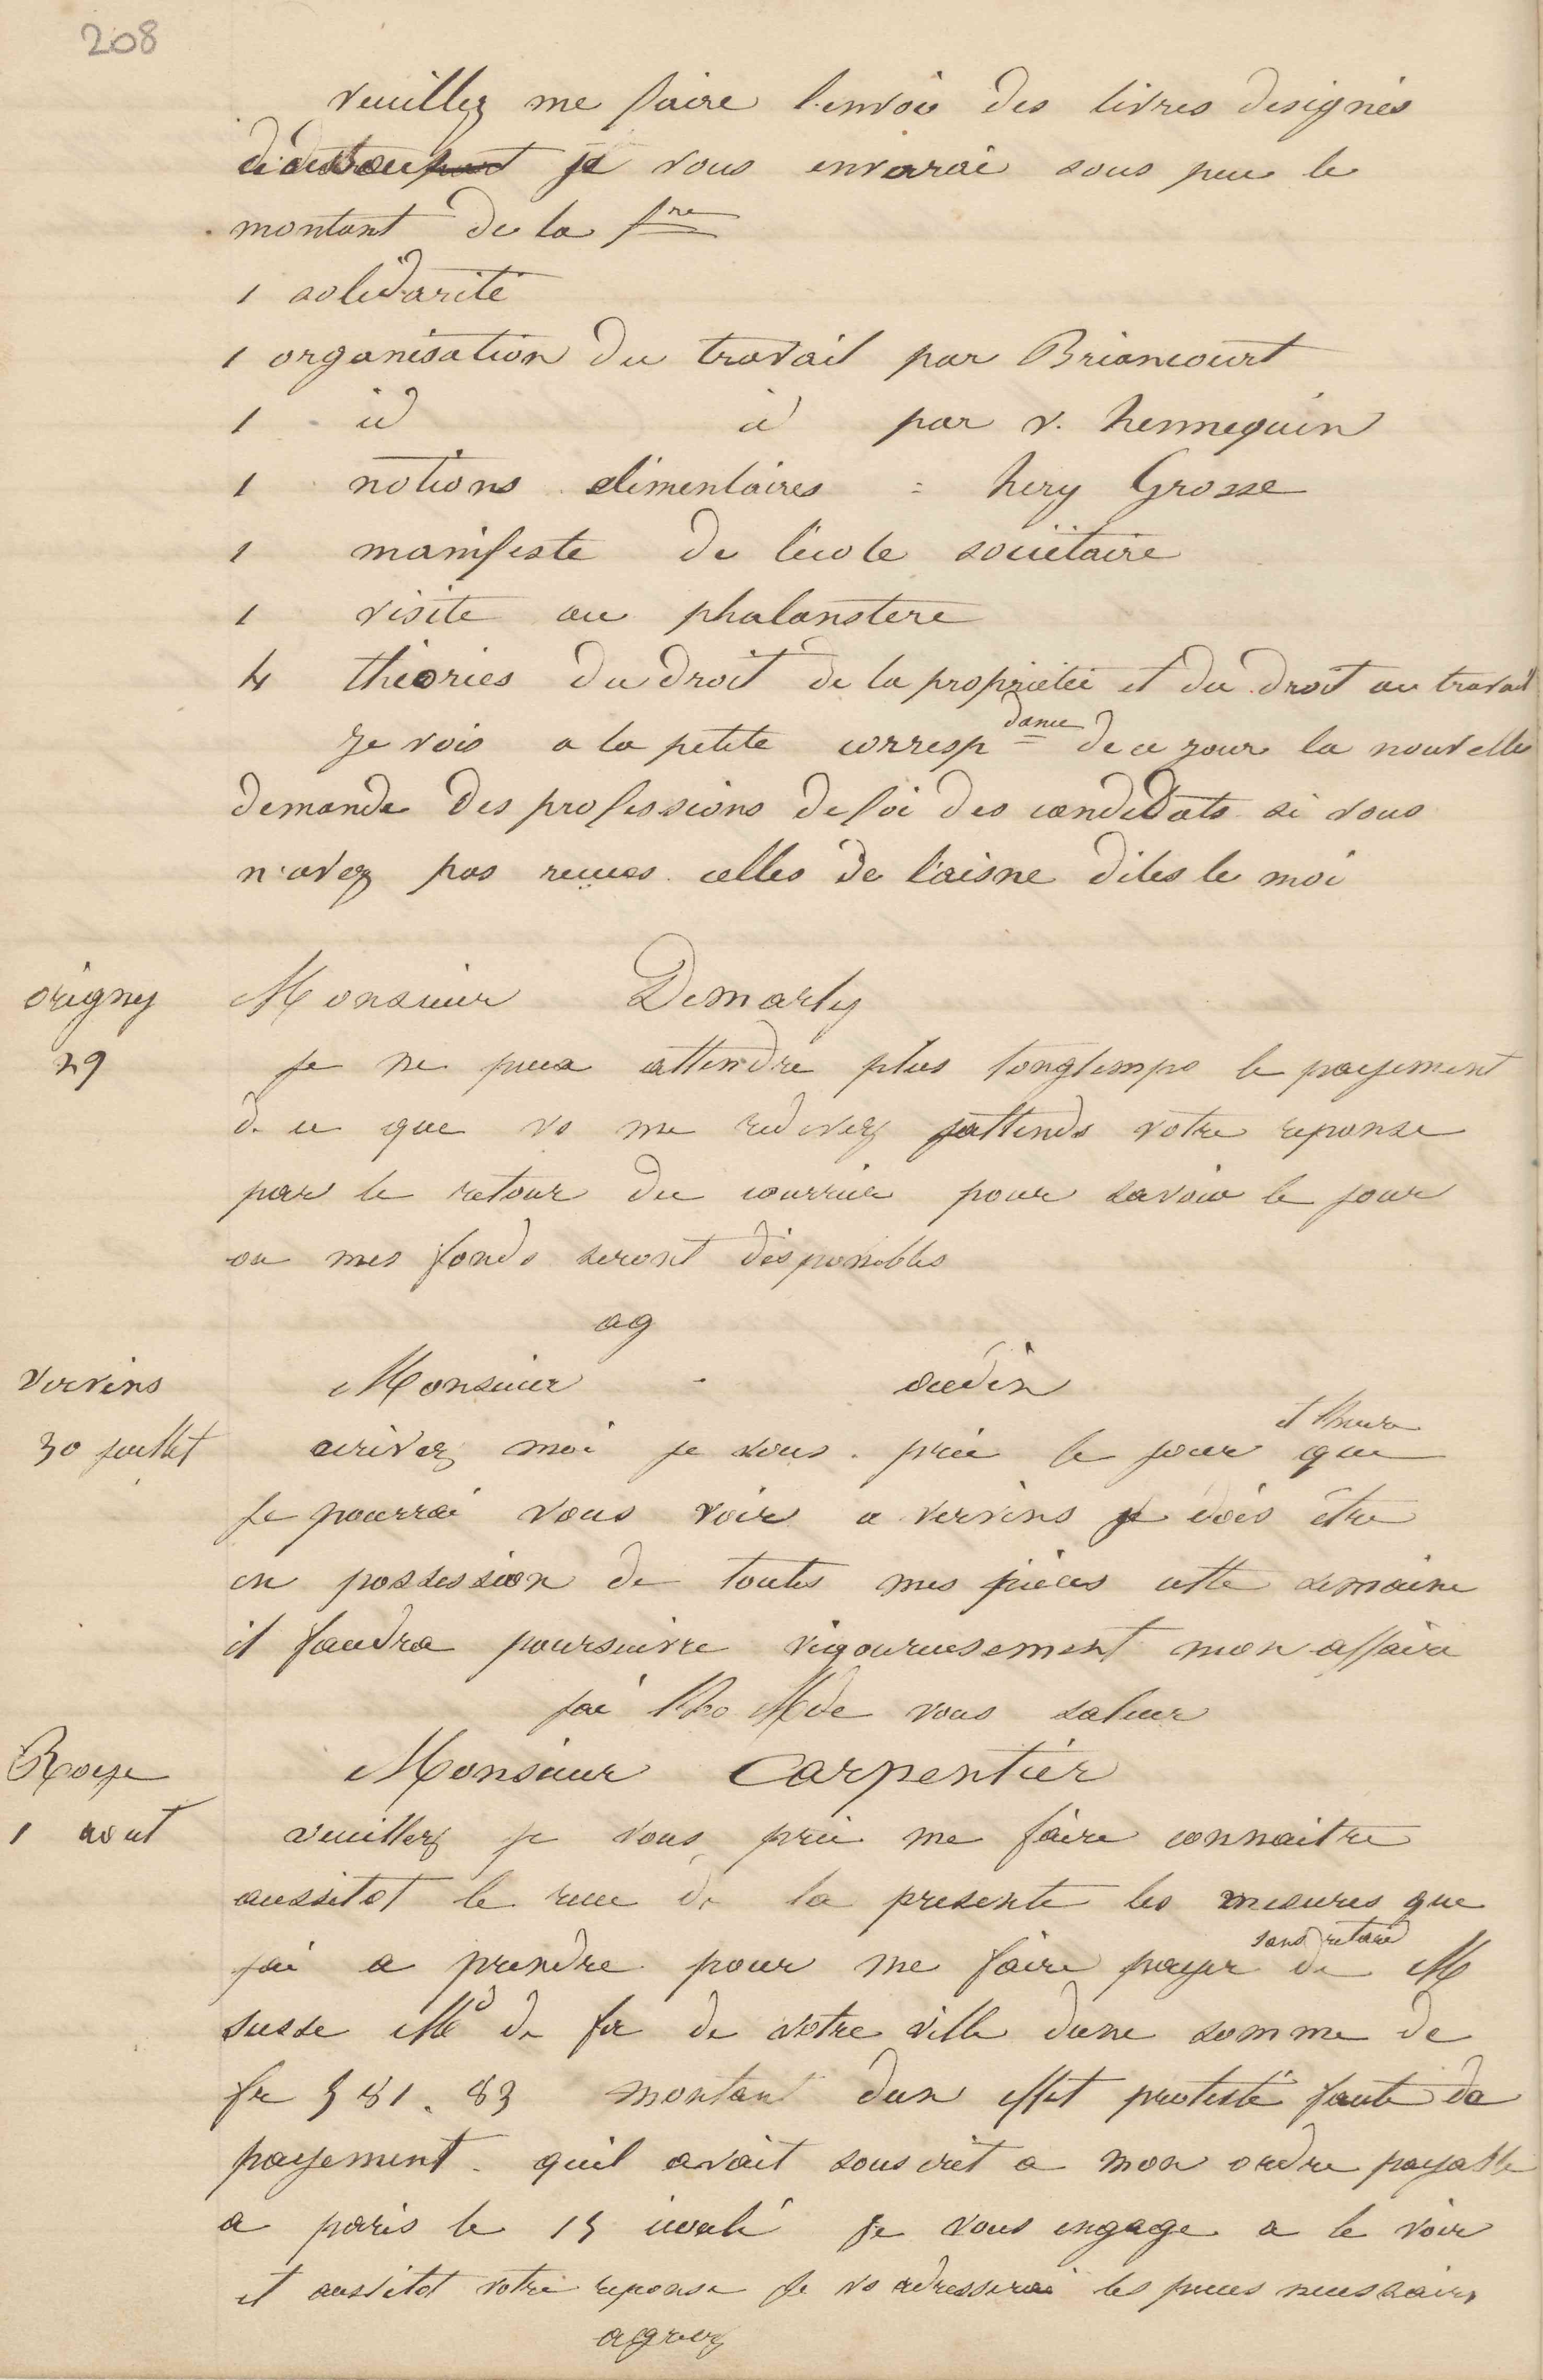 208
veuillez me faire l'envoi des livres designés
je vous enverai sous peu le
montant de la fre
1 solidarité
1 organisation du travail par Briancourt
1 id id par v. hennequin
1 notions elimentaires = hery Grosse
1 manifeste de lécole sociétaire
1 visite au phalanstere
4 théories du droit de la propriétée et du droit au travail
Je vois a la petite correspdance de ce jour la nouvelle
demande des professions de foi des candidats si vous
n'avez pas recues celles de l'aisne dites le moi
origny Monsieur Demarly
29 je ne peux attendre plus longtemps le payement
de ce que vs me redevez jattends votre reponse
par le retour du courrier pour savoir le jour
ou mes fonds seront disponibles
ag
Vervins Monsieur oudin
30 juillet ecrivez moi je vous prie le jour et lheure que
je pourrai vous voir a vervins je dois être
en possession de toutes mes pièces cette semaine
il faudra poursuivre vigoureusement mon affaire
jai de vous saluer
Roye Monsieur Carpentier
1 aout veuillez je vous prie me faire connaitre
aussitot le recu de la presente les mesures que
jai a prendre pour me faire payer sans retard de M
susse Md de fer de votre ville dune somme de
fr 581. 83 montant dun effet protesté faute de
payement quil avait souscrit a mon ordre payable
a paris le 15 je vous engage a le voir
et aussitot votre reponse je vs adresserai les pieces necessaires
agreez